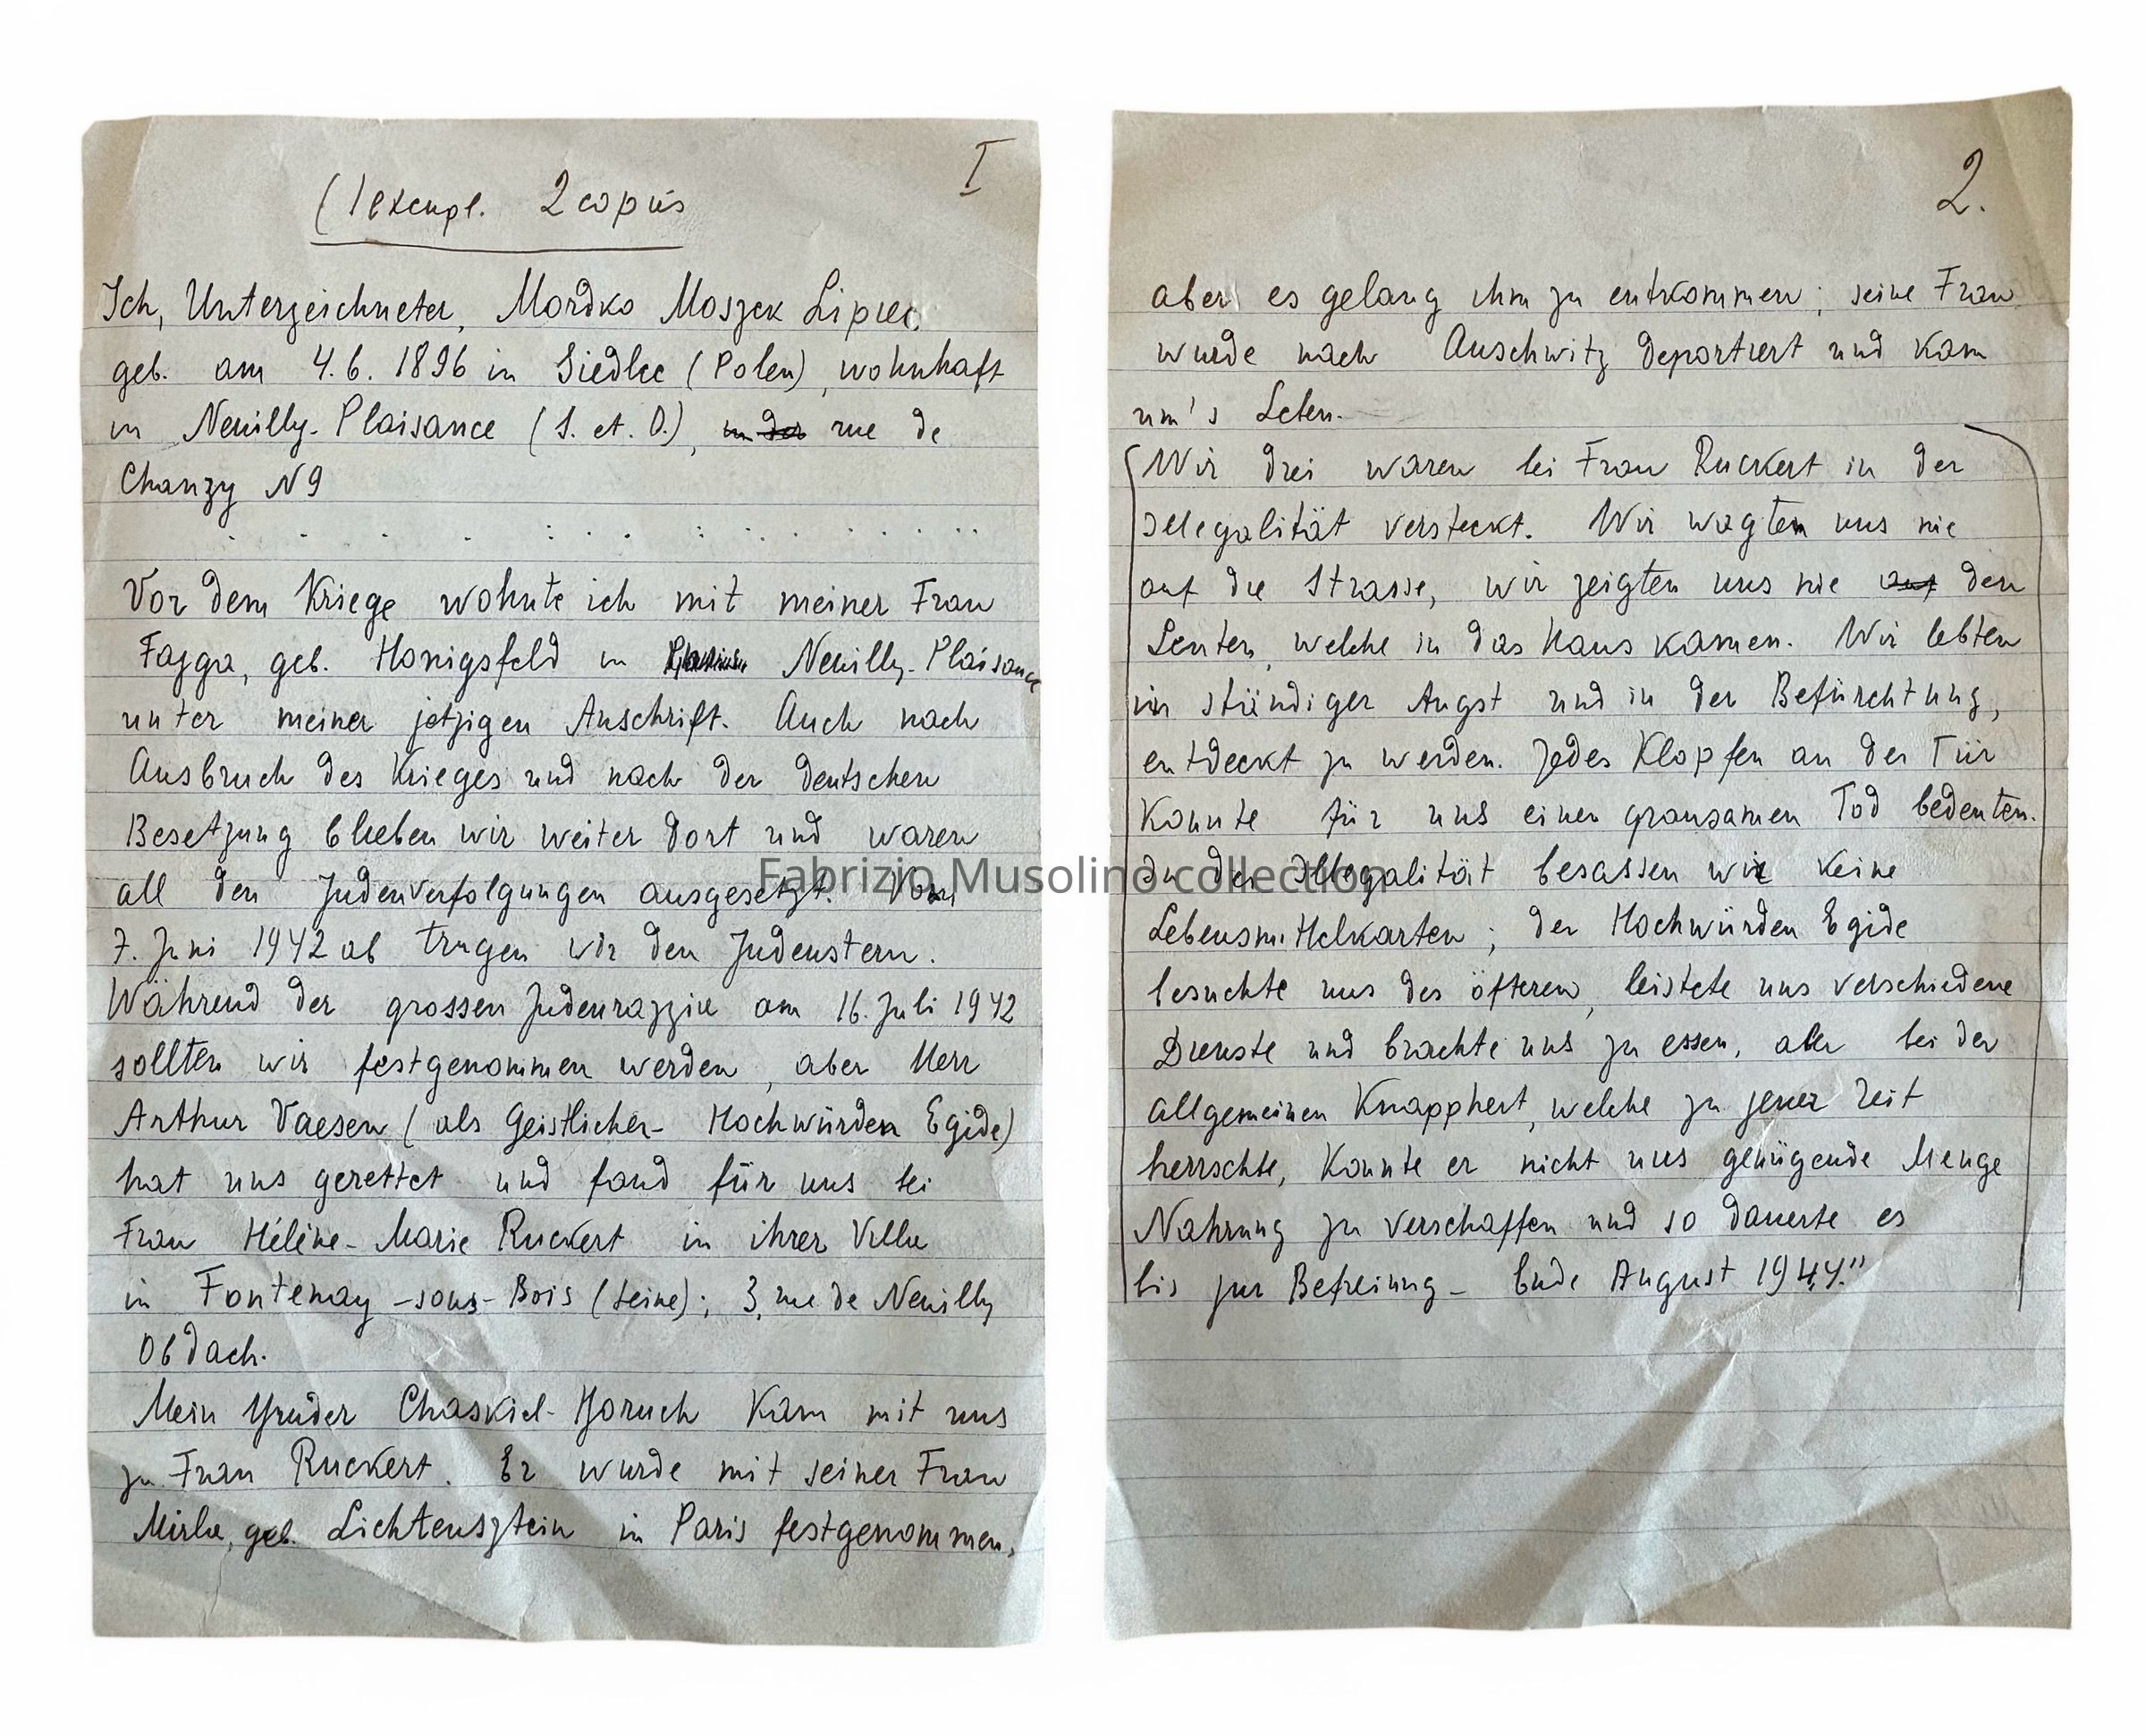 I
(1 exempl. 2 copies
Ich, Unterzeichneter, Mordko Moszek Lipiec
geb. am 4.6. 1896 in Siedlce (Polen), wohnhaft
in Neuilly-Plaisance (S. et. O.), in der rue de
Chanzy N 9
Vor dem Kriege wohnte ich mit meiner Frau
Fajga, geb. Honigsfeld in Neuilly-Plaisance
unter meiner jetzigen Anschrift. Auch nach
Ausbruch des Krieges und nach der deutschen
Besetzung blieben wir weiter dort und waren
all den Judenverfolgungen ausgesetzt. Vom
7. Juni 1942 ab trugen wir den Judenstern.
Während der grossen Judenrazzie am 16. Juli 1942
sollten wir festgenommen werden, aber Herr
Arthur Vaesen (als Geistlicher- Hochwürden Egide)
hat uns gerettet und fand für uns bei
Frau Hélène-Marie Ruckert in ihrer Villa
in Fontenay-sous-Bois (Seine); 3, rue de Neuilly
Obdach.
Mein Bruder Chaskiel-Boruch kam mit uns
zu Frau Ruckert. Er wurde mit seiner Frau
Mirla, geb. Lichtensztein in Paris festgenommen,
2.
aber es gelang ihm zu entkommen; seine Frau
wurde nach Auschwitz deportiert und kam
um's Leben.
Wir drei waren bei Frau Ruckert in der
Illegalität versteckt. Wir wagten uns nie
auf die Strasse, wir zeigten uns nie auf den
Leuten, welche in das Haus kamen. Wir lebten
in ständiger Angst und in der Befürchtung,
entdeckt zu werden. Jedes Klopfen an der Tür
konnte für uns einen grausamen Tod bedeuten.
In der Illegalität besassen wir keine
Lebensmittelkarten; der Hochwürden Egide
besuchte uns des öfteren, leistete uns verschiedene
Dienste und brachte uns zu essen, aber bei der
allgemeinen Knappheit, welche zu jener Zeit
herrschte, konnte er nicht uns genügende Menge
Nahrung zu verschaffen und so dauerte es
bis zur Befreiung - Ende August 1944."
Fabrizio Musolino collection